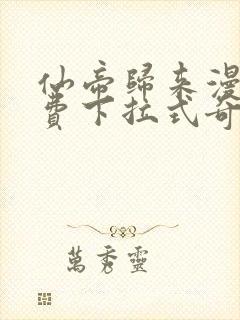 仙帝歸來漫
費下拉式奇
萬秀靈